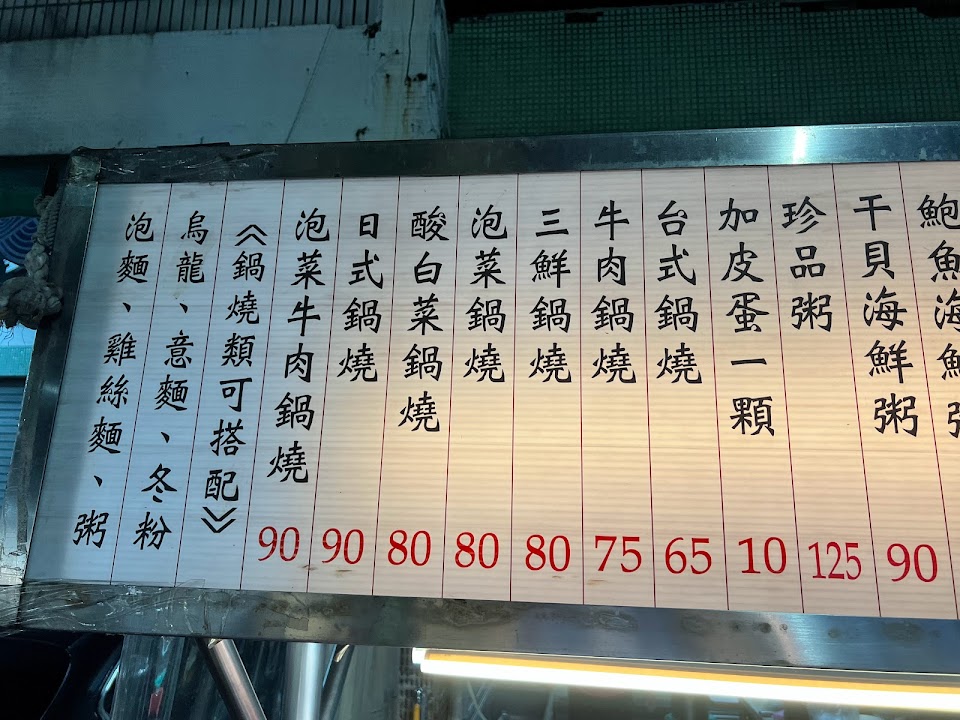 鮑魚海鮮
干貝海鮮粥 90
珍品粥 125
加皮蛋一顆 10
台式鍋燒 65
牛肉鍋燒 75
三鮮鍋燒 80
泡菜鍋燒 80
酸白菜鍋燒 80
日式鍋燒 90
泡菜牛肉鍋燒 90
《鍋燒類可搭配》
烏龍、意麵、冬粉
泡麵、雞絲麵、粥